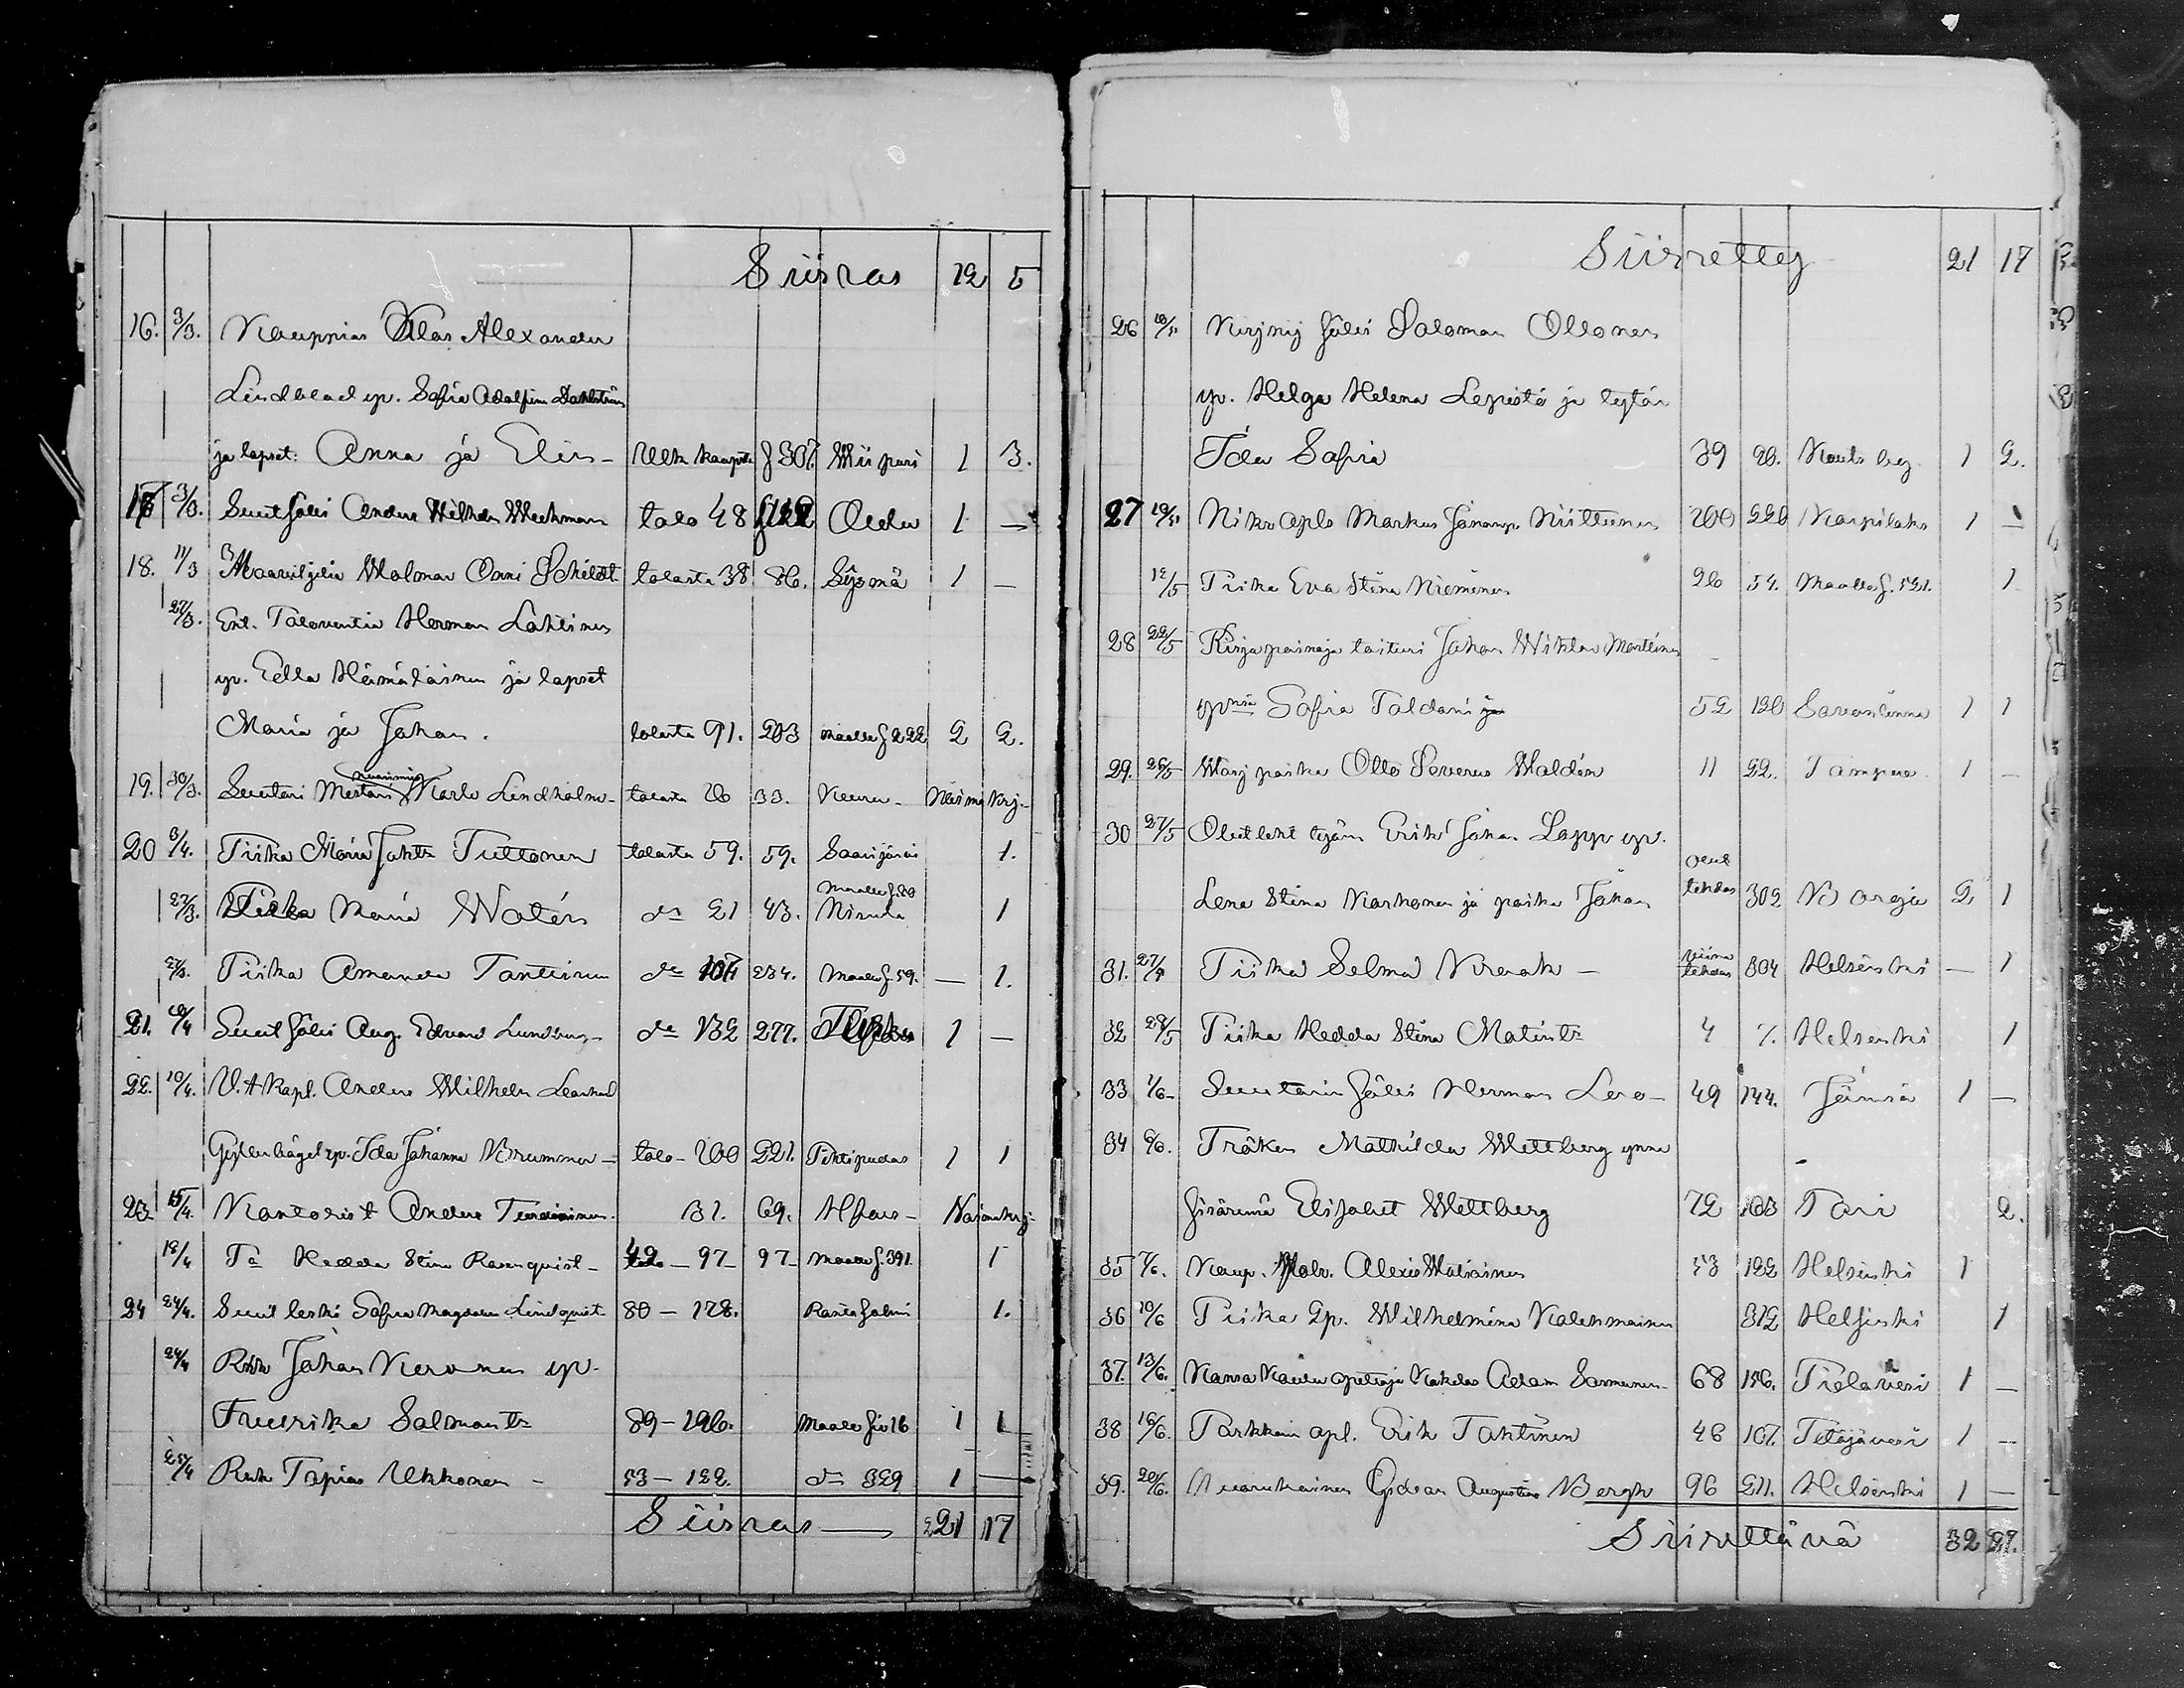 Siirros 12 5
16. 3/3. Kauppias Klas Alexander
Lindblad vp. Sofia Adolfina Dahlström
ja lapset: Anna ja Elin - Ulk kaup f 307. Wiipuri 1 3.
17 3/3. Suut Sälli Anders Wilhelm Weckman talo 48 112 Oulu 1 —
18. 11/3 Maanviljeliä Walmar Onni Schildt talosta 38. 86. Sysmä 1 —
27/3. Ent. Talonvartia Herman Lahtinen
vp. Eella Hämäläinen ja lapset
Maria ja Johan. talosta 91. 203 maalle f 222 2 2.
19. 30/3. Suutari Mestari Karlo Lindholm - talosta 20 33. Keuru - Naima krj.
20 3/4. Piika Maria Joht:r Tuttonen talosta 59. 59. Saarijärvi 1.
27/3. Piika Maria Watén d:o 21 43. Maalle f. 20 Nisula 1
27/3. Piika Amanda Tanttinen d:o 107 234. Maalle f. 59. — 1.
21. 10/4 Suut Sälli Aug. Edvard Lundberg - d:o 132 277. Turku 1 —
22. 10/4. V. t. Kapl. Anders Wilhelm Leonhard
Gyllenbögel vp. Ida Johanna Brummer - talo - 100 221. Pihtipudas 1 1
23 15/4. Kantorist Anders Tuominen. 31. 69. Alajärvi - Naimakrj:
12/4 Pa Hedda Stina Rosenquist - 42 - 97 - 97 - Maalle f. 391. 1
24 24/4. Suut leski Sofia Magdalena Lindquist 80 - 178. Rantasalmi 1.
24/4 Renki Johan Keronen vp.
Fredrika Salmant:r 89 - 196. Maalle siv 16 1 1
25/4 Renki Topias Ukkonen - 53 - 122. d:o 329 1 —
Siirros — 21 17
Siirretty 21 17
26 10/5 Nurjmij Sälli Salomon Ollonen
vp. Helga Helena Lepistö ja tytär
Ida Sofia 39 90. 1 2.
27 10/5 Nikr opls Markus Johanp. Niittunen 100 220 Karpilaks 1 —
12/5 Piika Eva Stina Nieminen 26 54. Maalle f. 521. 1.
28 22/5 Kirjapainaja taituri Johan Wiktor Martinen
vp:nsa Sofia Taldani ja 52 120 Savonlinna 1 1
29. 26/5 Warj poika Otto Severus Waldén 11 22. Tampere. 1 —
30 27/5 Oluttehd työm Erik Johan Lapp vp. Olut
Lena Stina Karhonen ja poika Johan tehdas 302 Borgå 2 1
31. 27/5 Piika Selma Kreak — Viina tehdas 304 Helsinki — 1
32 28/5 Piika Hedda Stina Matint:r 4 7. Helsinki 1
33 1/6 - Suutarin Sälli Herman Lero - 49 144. Jämsä 1 —
34 6/6. Fröken Mathilda Wettberg ynnä
sisärensä Elisabet Wettberg 72 163 Pori 2.
35 7/6. Kaup. Palv. Alexis Matiainen 53 122 Helsinki 1
36 10/6 Piika Ep. Wilhelmina Kalehmainen 312 Helsinki 1
37. 13/6. Kansa Koulun opettaja Kokelas Adam Sormunen - 68 156. Pielavesi 1 —
38 16/6. Parkkarin opl. Erik Tahtinen 46 107. Petäjävesi 1 —
39. 20/6. Vuorukainen Gideon Augustinus Bergh 96 211. Helsinki 1 —
Siirrettävä 32 27.